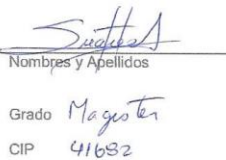 Nombres y Apellidos
Grado Magister
CIP 41682